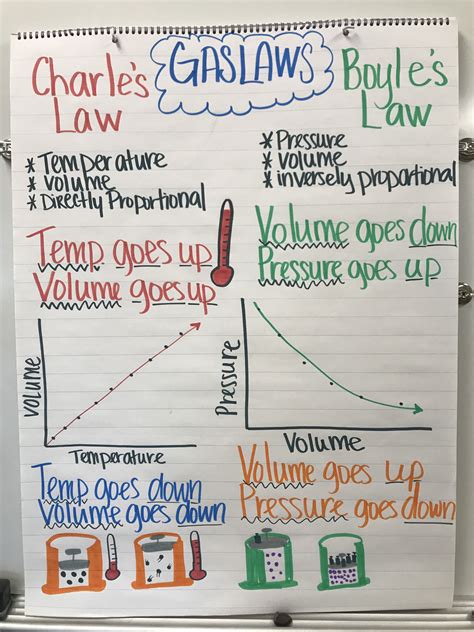 GAS LAWS
Charle's
Law
* Temperature
* volume
* Directly Proportional
Temp goes up
Volume goes up
Volume
Temperature
Temp goes down
Volume goes down
Boyle's
Law
* Pressure
* volume
* inversely proportional
Volume goes down
Pressure goes up
Pressure
Volume
Volume goes up
Pressure goes down